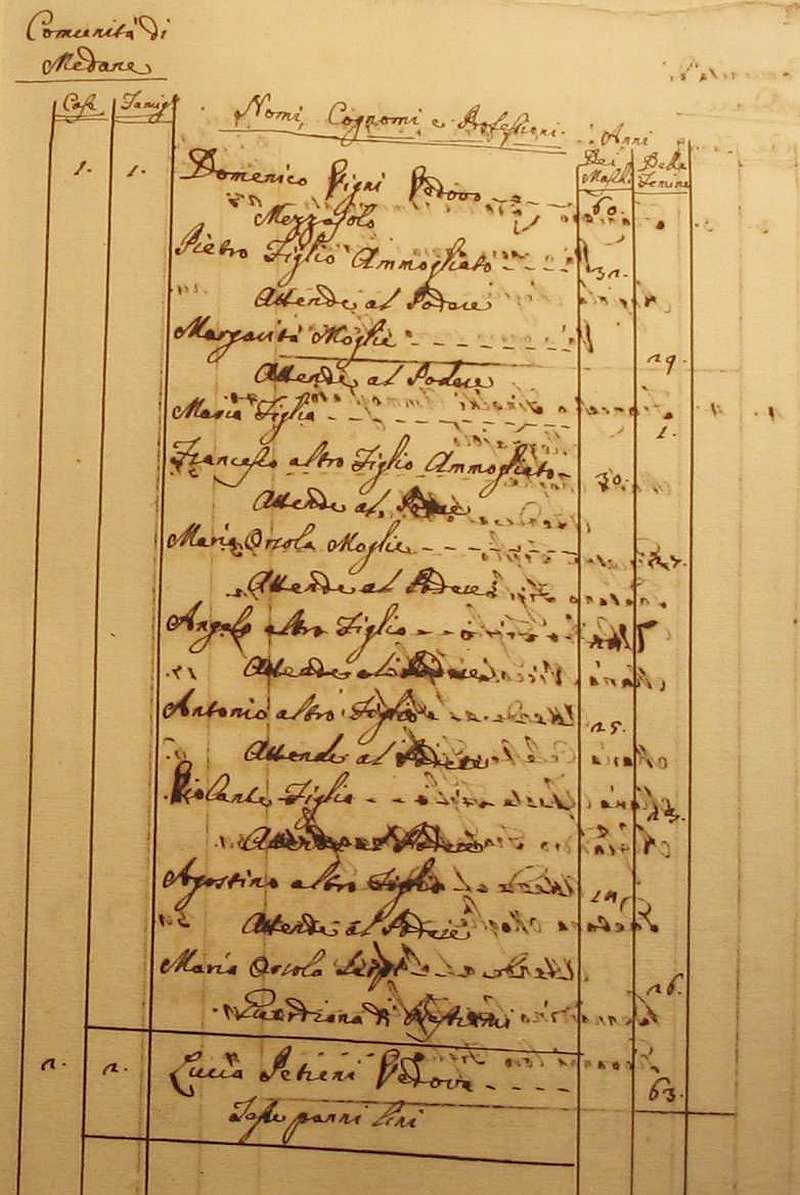 Comunità di
Medane
Case Famigl
Nomi, Cognomi e Professioni. Anni
Dei Maschi Delle Femine
1. 1. Domenico Vigni Vedovo 60.
Mezzajolo
Pietro Figlio Ammogliato
Attende al Podere
Margarita Moglie 29.
Attende al Podere
Maria Figlia 1.
Francesco altro Figlio Ammogliato 30.
Attende al Podere
Maria Orsola Moglie
Attende al Podere
Angelo altro Figlio
Attende al Podere
Antonio altro Figlio 25.
Attende al Podere
Violante Figlia
Attende al Podere
Agostino altro Figlio
Attende al Podere
Maria Orsola 26.
Guardiana di Bestiami
2. 2. Lucia Petreni Vedova 63.
Tesse panni lini